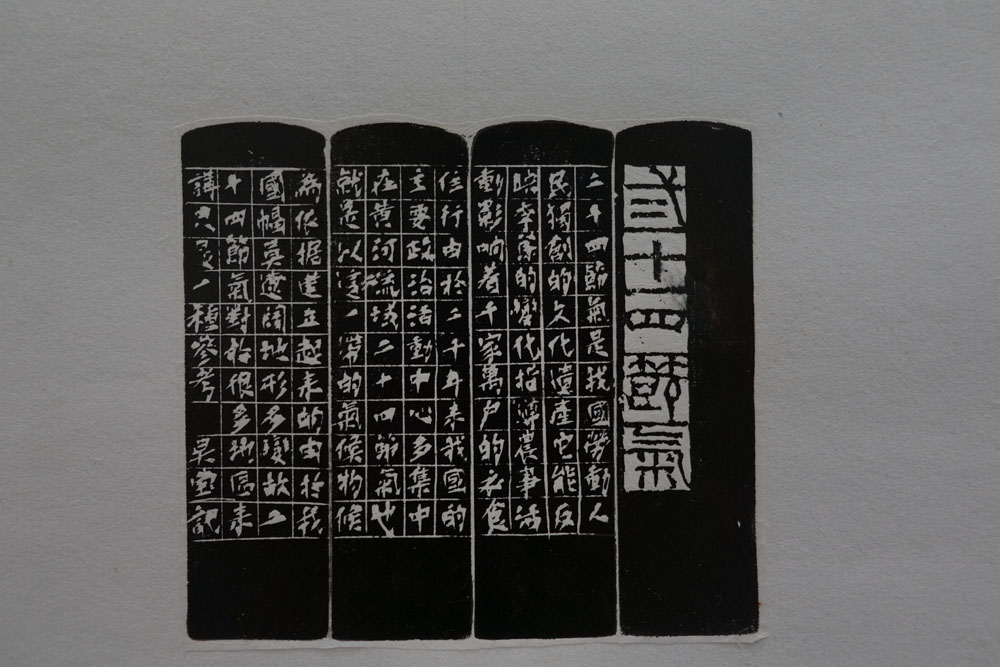 弍十四節氣
二十四節氣是我國勞動人
民獨創的文化遺產它能反
映季節的變化指導農事活
動影响着千家萬户的衣食
住行由於二千年来我國的
主要政治活動中心多集中
在黄河流域二十四節氣也
就是以這一帶的氣候物候
為依据建立起来的由於我
國幅員遼阔地形多變故二
十四節氣對於很多地區来
講只是一種參考 昊堂記